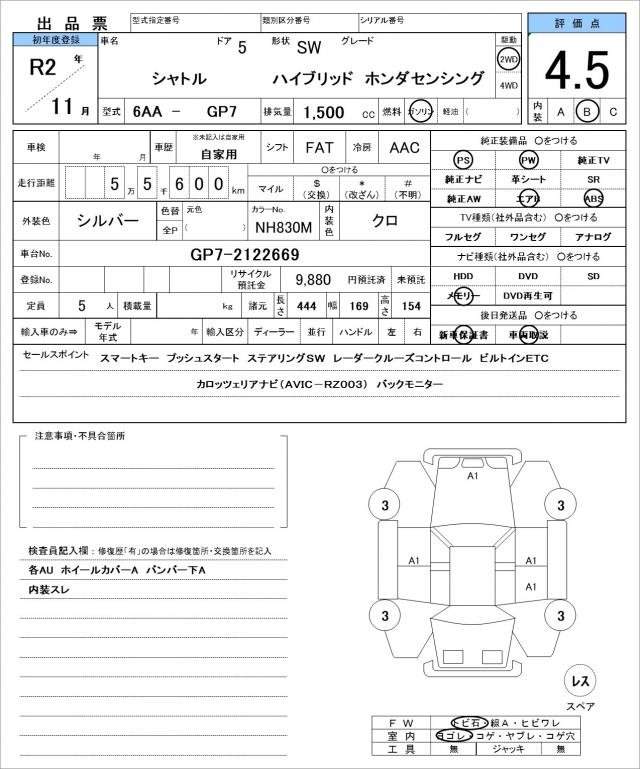 出品票 型式指定番号 類別区分番号 シリアル番号 評価点
初年度登録 車名 ドア 5 形状 SW グレード 駆動
R2 年 シャトル ハイブリッド ホンダセンシング 2WD 4.5
4WD
11 月 型式 6AA － GP7 排気量 1,500 cc 燃料 ガソリン 軽油 ( ) 内装 A B C
車検 年 月 車歴 ※未記入は自家用 自家用 シフト FAT 冷房 AAC 純正装備品 ○をつける
PS PW 純正TV
走行距離 5 万 5 千 6 0 0 km ○をつける
マイル $ (交換) * (改ざん) # (不明) 純正ナビ 革シート SR
純正AW エアB ABS
外装色 シルバー 色替 元色 全P ( ) カラーNo. NH830M 内装色 クロ TV種類(社外品含む) ○をつける
フルセグ ワンセグ アナログ
車台No. GP7-2122669 ナビ種類(社外品含む) ○をつける
登録No. リサイクル預託金 9,880 円預託済 未預託 HDD DVD SD
定員 5 人 積載量 kg 諸元 長さ 444 幅 169 高さ 154 メモリー DVD再生可
後日発送品 ○をつける
輸入車のみ⇒ モデル年式 年 輸入区分 ディーラー 並行 ハンドル 左 右 新車保証書 車両取説
セールスポイント スマートキー プッシュスタート ステアリングSW レーダークルーズコントロール ビルトインETC
カロッツェリアナビ(AVIC－RZ003) バックモニター
注意事項・不具合箇所
A1
3 3
検査員記入欄：修復歴「有」の場合は修復箇所・交換箇所を記入
各AU ホイールカバーA バンパー下A
内装スレ
A1 A1
A1
3 3
レス
スペア
FW トビ石・線A・ヒビワレ
室内 ヨゴレ・コゲ・ヤブレ・コゲ穴
工具 無 ジャッキ 無